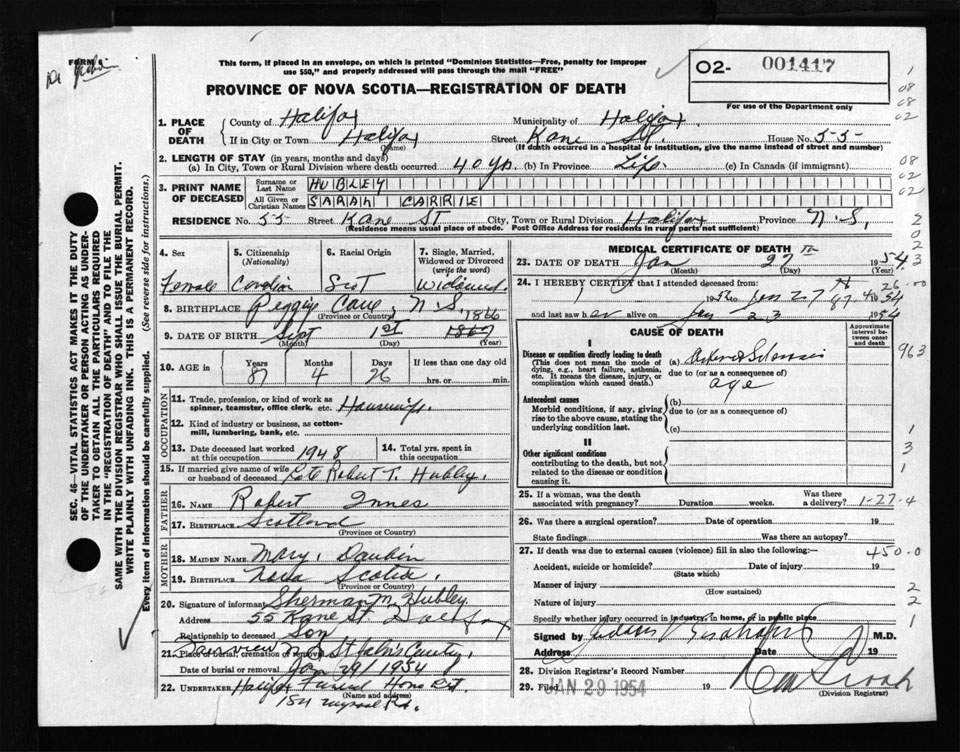 FORM 9
This form, if placed in an envelope, on which is printed "Dominion Statistics—Free, penalty for improper
use $50," and properly addressed will pass through the mail "FREE"
O2- 001417
For use of the Department only
PROVINCE OF NOVA SCOTIA—REGISTRATION OF DEATH
1. PLACE OF DEATH
County of Halifax Municipality of Halifax
If in City or Town Halifax Street Kane St. House No. 55
(Name) (If death occurred in a hospital or institution, give the name instead of street and number)
2. LENGTH OF STAY (in years, months and days)
(a) In City, Town or Rural Division where death occurred 40 yrs. (b) In Province Life (c) In Canada (if immigrant)
3. PRINT NAME OF DECEASED
Surname or Last Name HUBLEY
All Given or Christian Names SARAH CARRIE
RESIDENCE No. 55 Street Kane St City, Town or Rural Division Halifax Province N.S.
(Residence means usual place of abode. Post Office Address for residents in rural parts not sufficient)
4. Sex
Female
5. Citizenship
(Nationality)
Canadian
6. Racial Origin
7. Single, Married,
Widowed or Divorced
(write the word)
Widowed
8. BIRTHPLACE Peggys Cove, N S.
(Province or Country)
1866
9. DATE OF BIRTH Sept 1st 1867
(Month) (Day) (Year)
10. AGE in
Years Months Days If less than one day old
87 4 26 hrs. or min.
OCCUPATION
11. Trade, profession, or kind of work as
spinner, teamster, office clerk, etc. Housewife
12. Kind of industry or business, as cotton-
mill, lumbering, bank, etc.
13. Date deceased last worked
at this occupation 1948
14. Total yrs. spent in
this occupation
15. If married give name of wife
or husband of deceased Late Robert T. Hubley
FATHER
16. NAME Robert Innes
17. BIRTHPLACE Scotland
(Province or Country)
MOTHER
18. MAIDEN NAME Mary
19. BIRTHPLACE Nova Scotia.
(Province or Country)
20. Signature of informant Sherman M. Hubley
Address 55 Kane St Halifax
Relationship to deceased Son
21. Place of burial, cremation or removal Fairview N S St John's Cemetery
Date of burial or removal Jan 29/1954
22. UNDERTAKER Halifax Funeral Home
(Name and address)
MEDICAL CERTIFICATE OF DEATH
23. DATE OF DEATH Jan 27th 1954
(Month) (Day) (Year)
24. I HEREBY CERTIFY that I attended deceased from:
1952 to Jan 27th 1954
and last saw her alive on Jan 23 1954
CAUSE OF DEATH
Approximate
interval
between onset
and death
I
Disease or condition directly leading to death
(This does not mean the mode of
dying, e.g., heart failure, asthenia,
etc. It means the disease, injury, or
complication which caused death.)
(a) Arteriosclerosis
due to (or as a consequence of)
age
Antecedent causes
Morbid conditions, if any, giving
rise to the above cause, stating the
underlying condition last.
(b)
due to (or as a consequence of)
(c)
II
Other significant conditions
contributing to the death, but not
related to the disease or condition
causing it.
25. If a woman, was the death
associated with pregnancy? Duration weeks. Was there a
delivery?
26. Was there a surgical operation? Date of operation 19
State findings Was there an autopsy?
27. If death was due to external causes (violence) fill in also the following:—
Accident, suicide or homicide? Date of injury 19
(State which)
Manner of injury
(How sustained)
Nature of injury
Specify whether injury occurred in industry, in home, or in public place
Signed by M.D.
Address Date 19
28. Division Registrar's Record Number
29. Filed JAN 29 1954 19
(Division Registrar)
SEC. 46—VITAL STATISTICS ACT MAKES IT THE DUTY
OF THE UNDERTAKER OR PERSON ACTING AS UNDER-
TAKER TO OBTAIN ALL THE PARTICULARS REQUIRED
IN THE "REGISTRATION OF DEATH" AND TO FILE THE
SAME WITH THE DIVISION REGISTRAR WHO SHALL ISSUE THE BURIAL PERMIT.
WRITE PLAINLY WITH UNFADING INK. THIS IS A PERMANENT RECORD.
Every item of information should be carefully supplied. (See reverse side for instructions.)
1
08
08
02
08
02
02
2
0
2
3
26-00
963
1
3
1
1-27-4
450-0
2
2
1